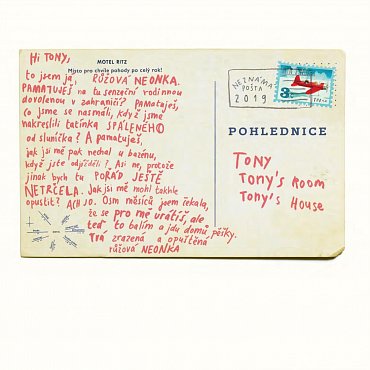 Hi TONY,
MOTEL RITZ
Místo pro chvíle pohody po celý rok!
to jsem já, RŮŽOVÁ NEONKA.
PAMATUJEŠ na tu senzační rodinnou
dovolenou v zahraničí? Pamatuješ,
co jsme se nasmáli, když jsme
nakreslili tatínka SPÁLENÉHO
od sluníčka? A pamatuješ,
jak jsi mě pak nechal u bazénu,
když jste odjížděli? Asi ne, protože
jinak bych tu POŘÁD JEŠTĚ
NETRČELA. Jak jsi mě mohl takhle
opustit? ACH JO. Osm měsíců jsem čekala,
že se pro mě vrátíš, ale
teď to balím a jdu domů pěšky.
Tvá zrazená a opuštěná
růžová NEONKA
NEZNÁMÁ
POŠTA
2019
3
POHLEDNICE
TONY
TONY'S ROOM
TONY'S HOUSE